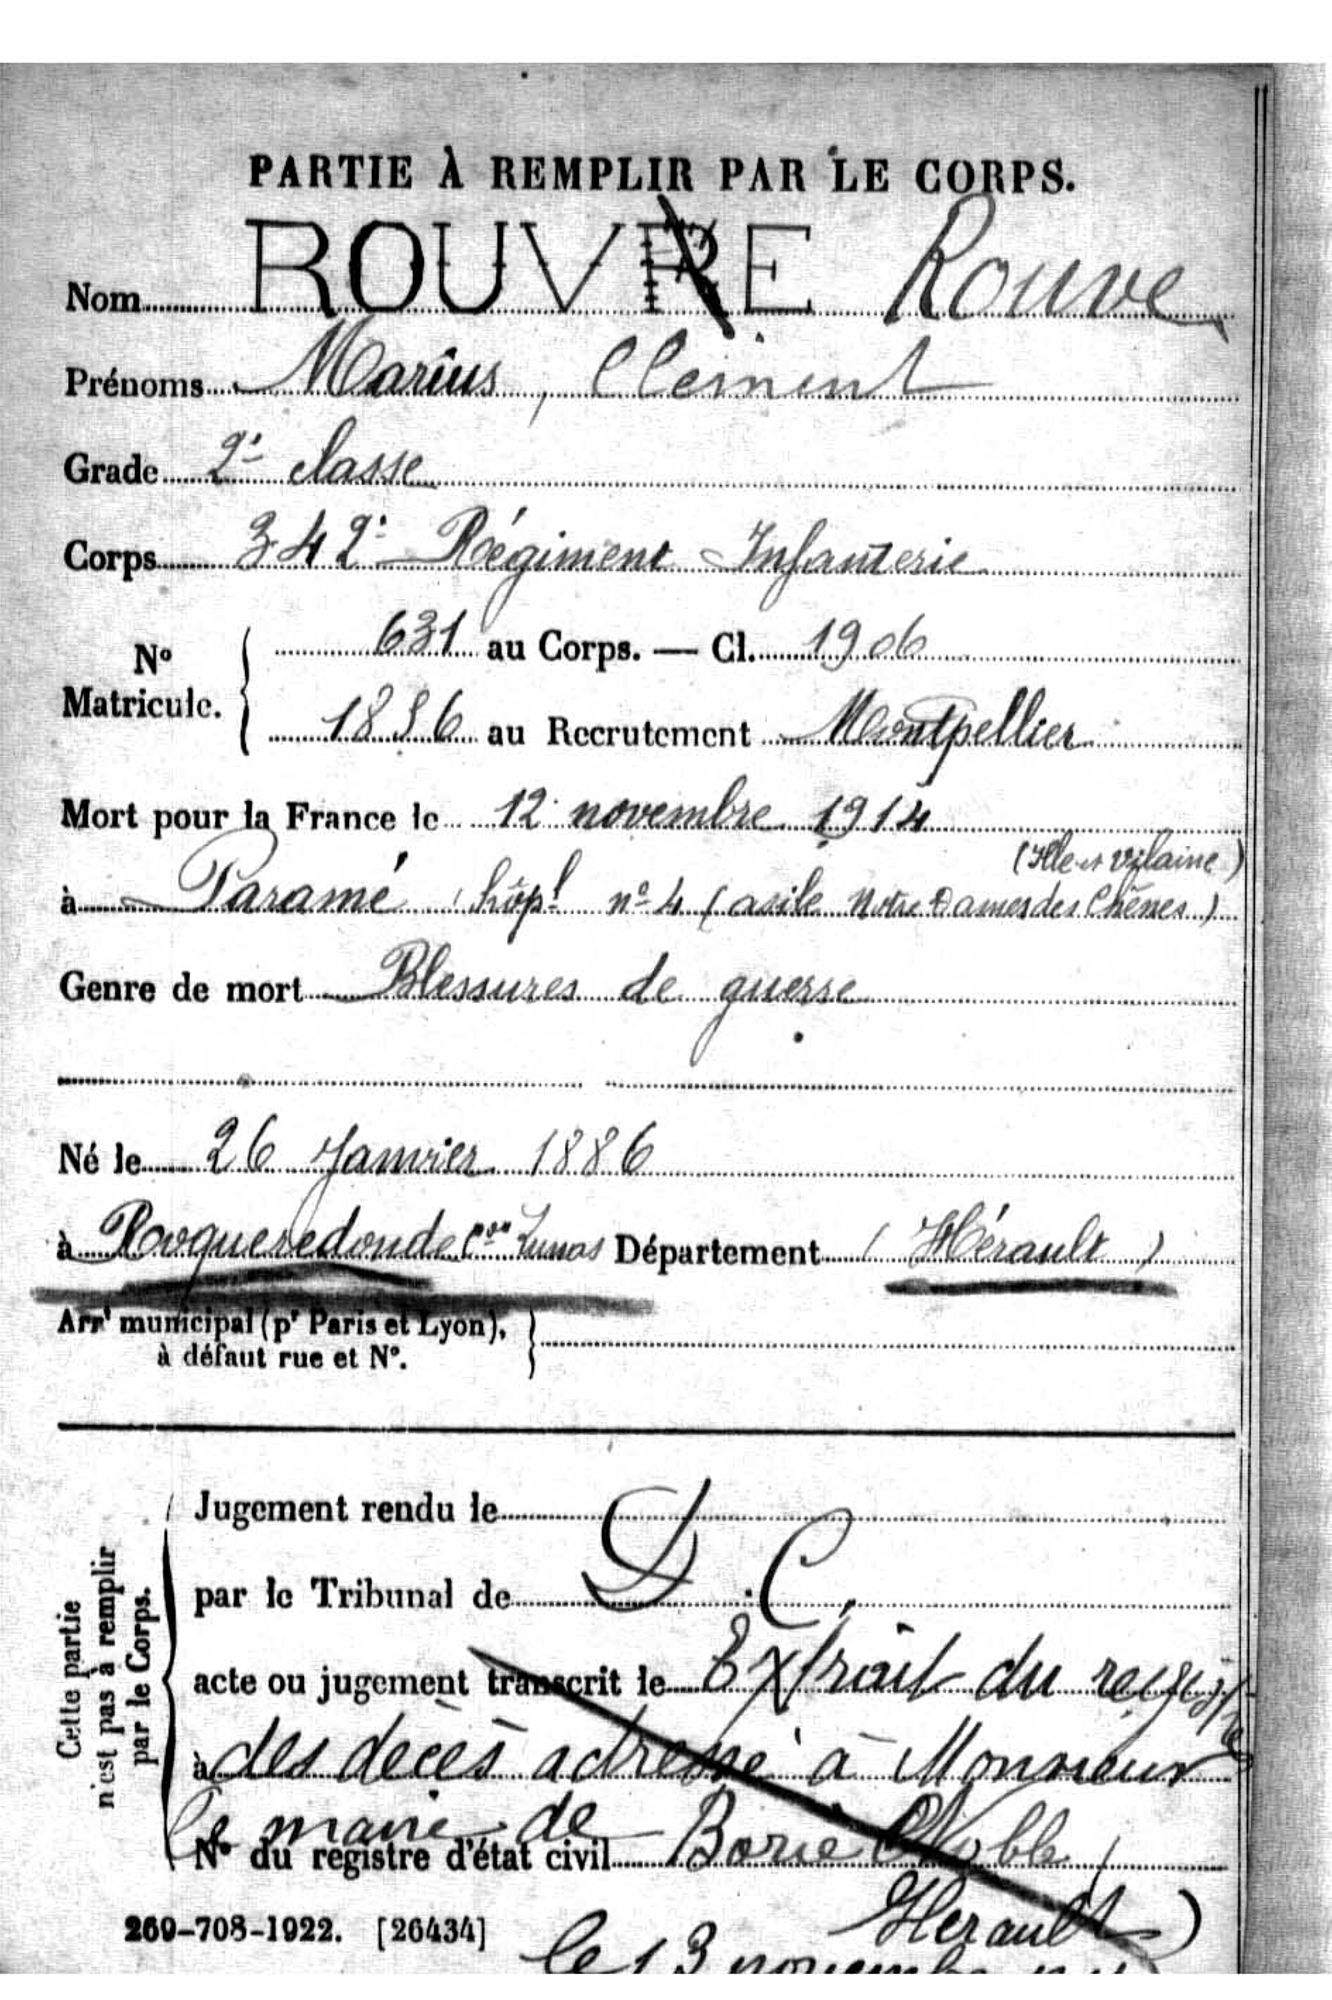 PARTIE À REMPLIR PAR LE CORPS.
Nom ROUVRE Rouve
Prénoms Marius, Clément
Grade 2e classe
Corps 342e Régiment Infanterie
N° Matricule. 631 au Corps. — Cl. 1906
1886 au Recrutement Montpellier
Mort pour la France le 12 novembre 1914
(Ille et Vilaine)
à Paramé hôpl n° 4 (asile Notre Dames des Chênes)
Genre de mort Blessures de guerre
Né le 26 Janvier 1886
à Roqueredonde Con Lunas Département (Hérault)
Arrt municipal (pr Paris et Lyon),
à défaut rue et N°.
Cette partie
n'est pas à remplir
par le Corps.
Jugement rendu le
par le Tribunal de D. C.
acte ou jugement transcrit le Extrait du registre
à des décès adressé à Monsieur
le maire de
N° du registre d'état civil Borie Noble (
Herault)
269-708-1922. [26434]
le 13 novembre